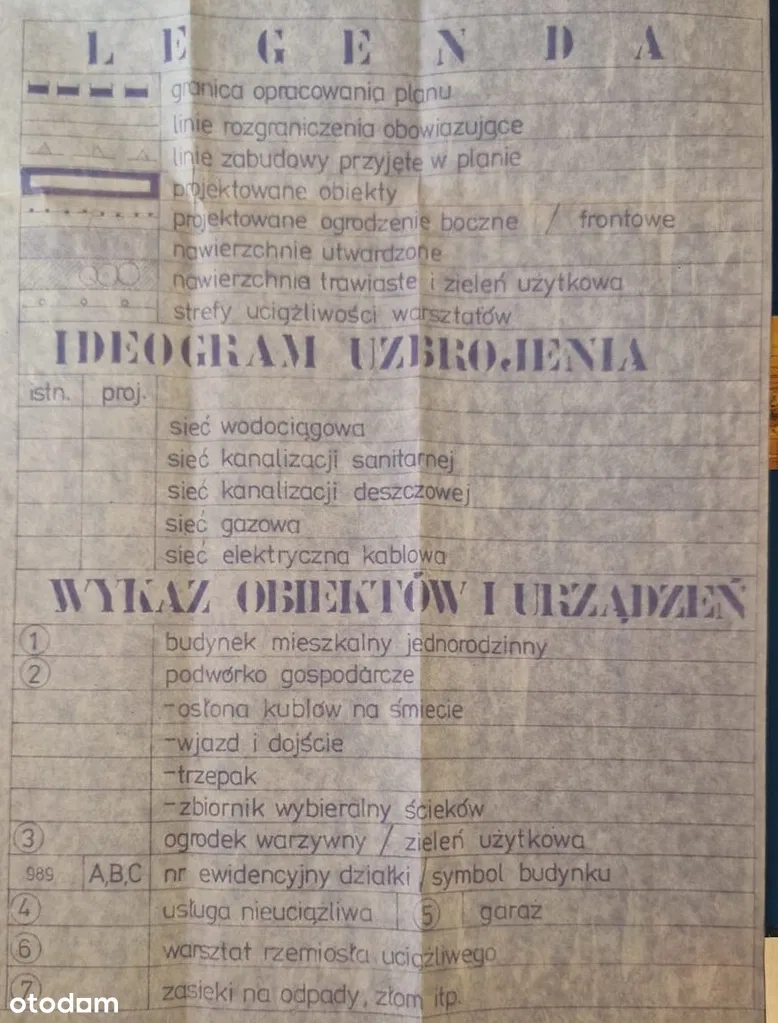 LEGENDA
granica opracowania planu
linie rozgraniczenia obowiązujące
linie zabudowy przyjęte w planie
projektowane obiekty
projektowane ogrodzenie boczne / frontowe
nawierzchnie utwardzone
nawierzchnie trawiaste i zieleń użytkowa
strefy uciążliwości warsztatów
IDEOGRAM UZBROJENIA
istn. proj.
sieć wodociągowa
sieć kanalizacji sanitarnej
sieć kanalizacji deszczowej
sieć gazowa
sieć elektryczna kablowa
WYKAZ OBIEKTÓW I URZĄDZEŃ
1 budynek mieszkalny jednorodzinny
2 podwórko gospodarcze
-osłona kubłów na śmiecie
-wjazd i dojście
-trzepak
-zbiornik wybieralny ścieków
3 ogrodek warzywny / zieleń użytkowa
989 A,B,C nr ewidencyjny działki / symbol budynku
4 usługa nieuciążliwa 5 garaż
6 warsztat rzemiosła uciążliwego
7 zasieki na odpady, złom itp.
otodom